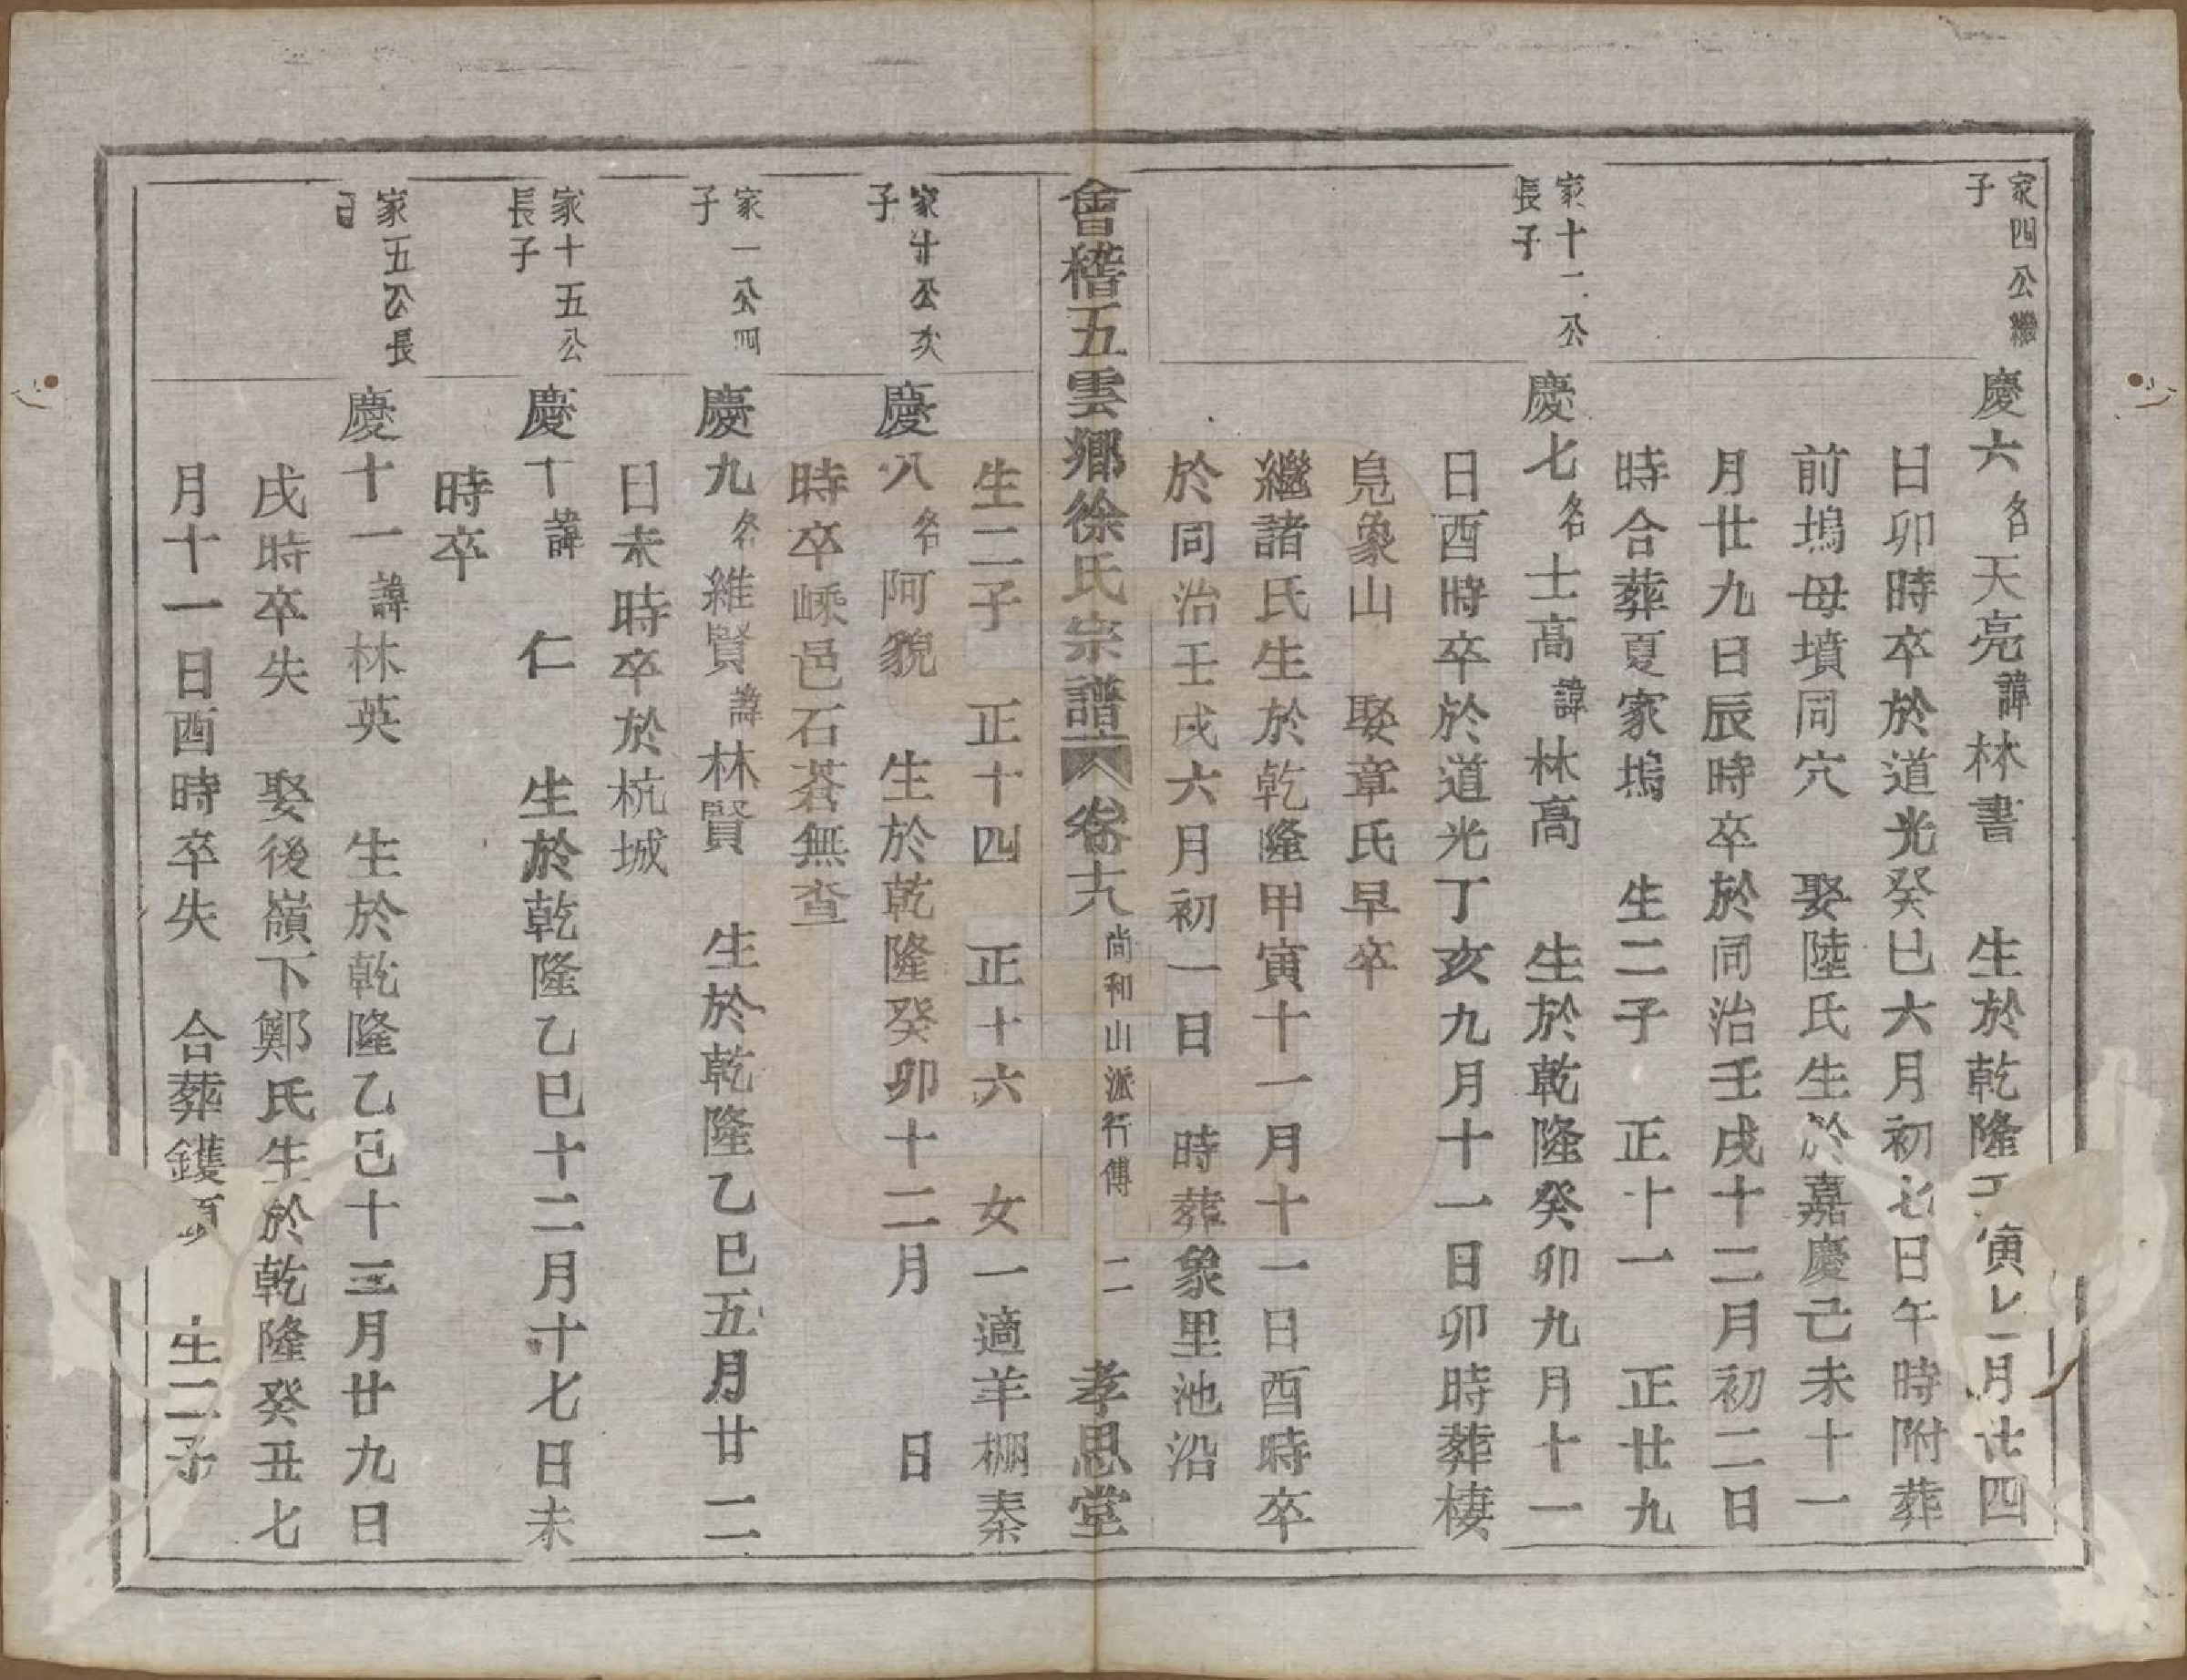 家四公繼
子
慶六名天亮諱林書 生於乾隆寅月廿四
日卯時卒於道光癸巳六月初七日午時附葬
前塢母墳同穴 娶陸氏生於嘉慶己未十一
月廿九日辰時卒於同治壬戌十二月初二日
時合葬夏家塢 生二子 正十一 正廿九
家十一公
長子
慶七名士高諱林高 生於乾隆癸卯九月十一
日酉時卒於道光丁亥九月十一日卯時葬棲
鳧象山 娶章氏早卒
繼諸氏生於乾隆甲寅十一月十一日酉時卒
於同治壬戌六月初一日 時葬象里池沿
會稽五雲鄉徐氏宗譜 卷十八 尚和山派行傳 二 孝思堂
生二子 正十四 正十六 女一適羊棚秦
家廿公次
子
慶八名阿貌 生於乾隆癸卯十二月 日
時卒嵊邑石蒼無查
家一公四
子
慶九名維賢諱林賢 生於乾隆乙巳五月廿二
日未時卒於杭城
家十五公
長子
慶十諱 仁 生於乾隆乙巳十二月十七日未
時卒
家五公長
慶十一諱林英 生於乾隆乙巳十三月廿九日
戌時卒失 娶後嶺下鄭氏生於乾隆癸丑七
月十一日酉時卒失 合葬鑊 生二子